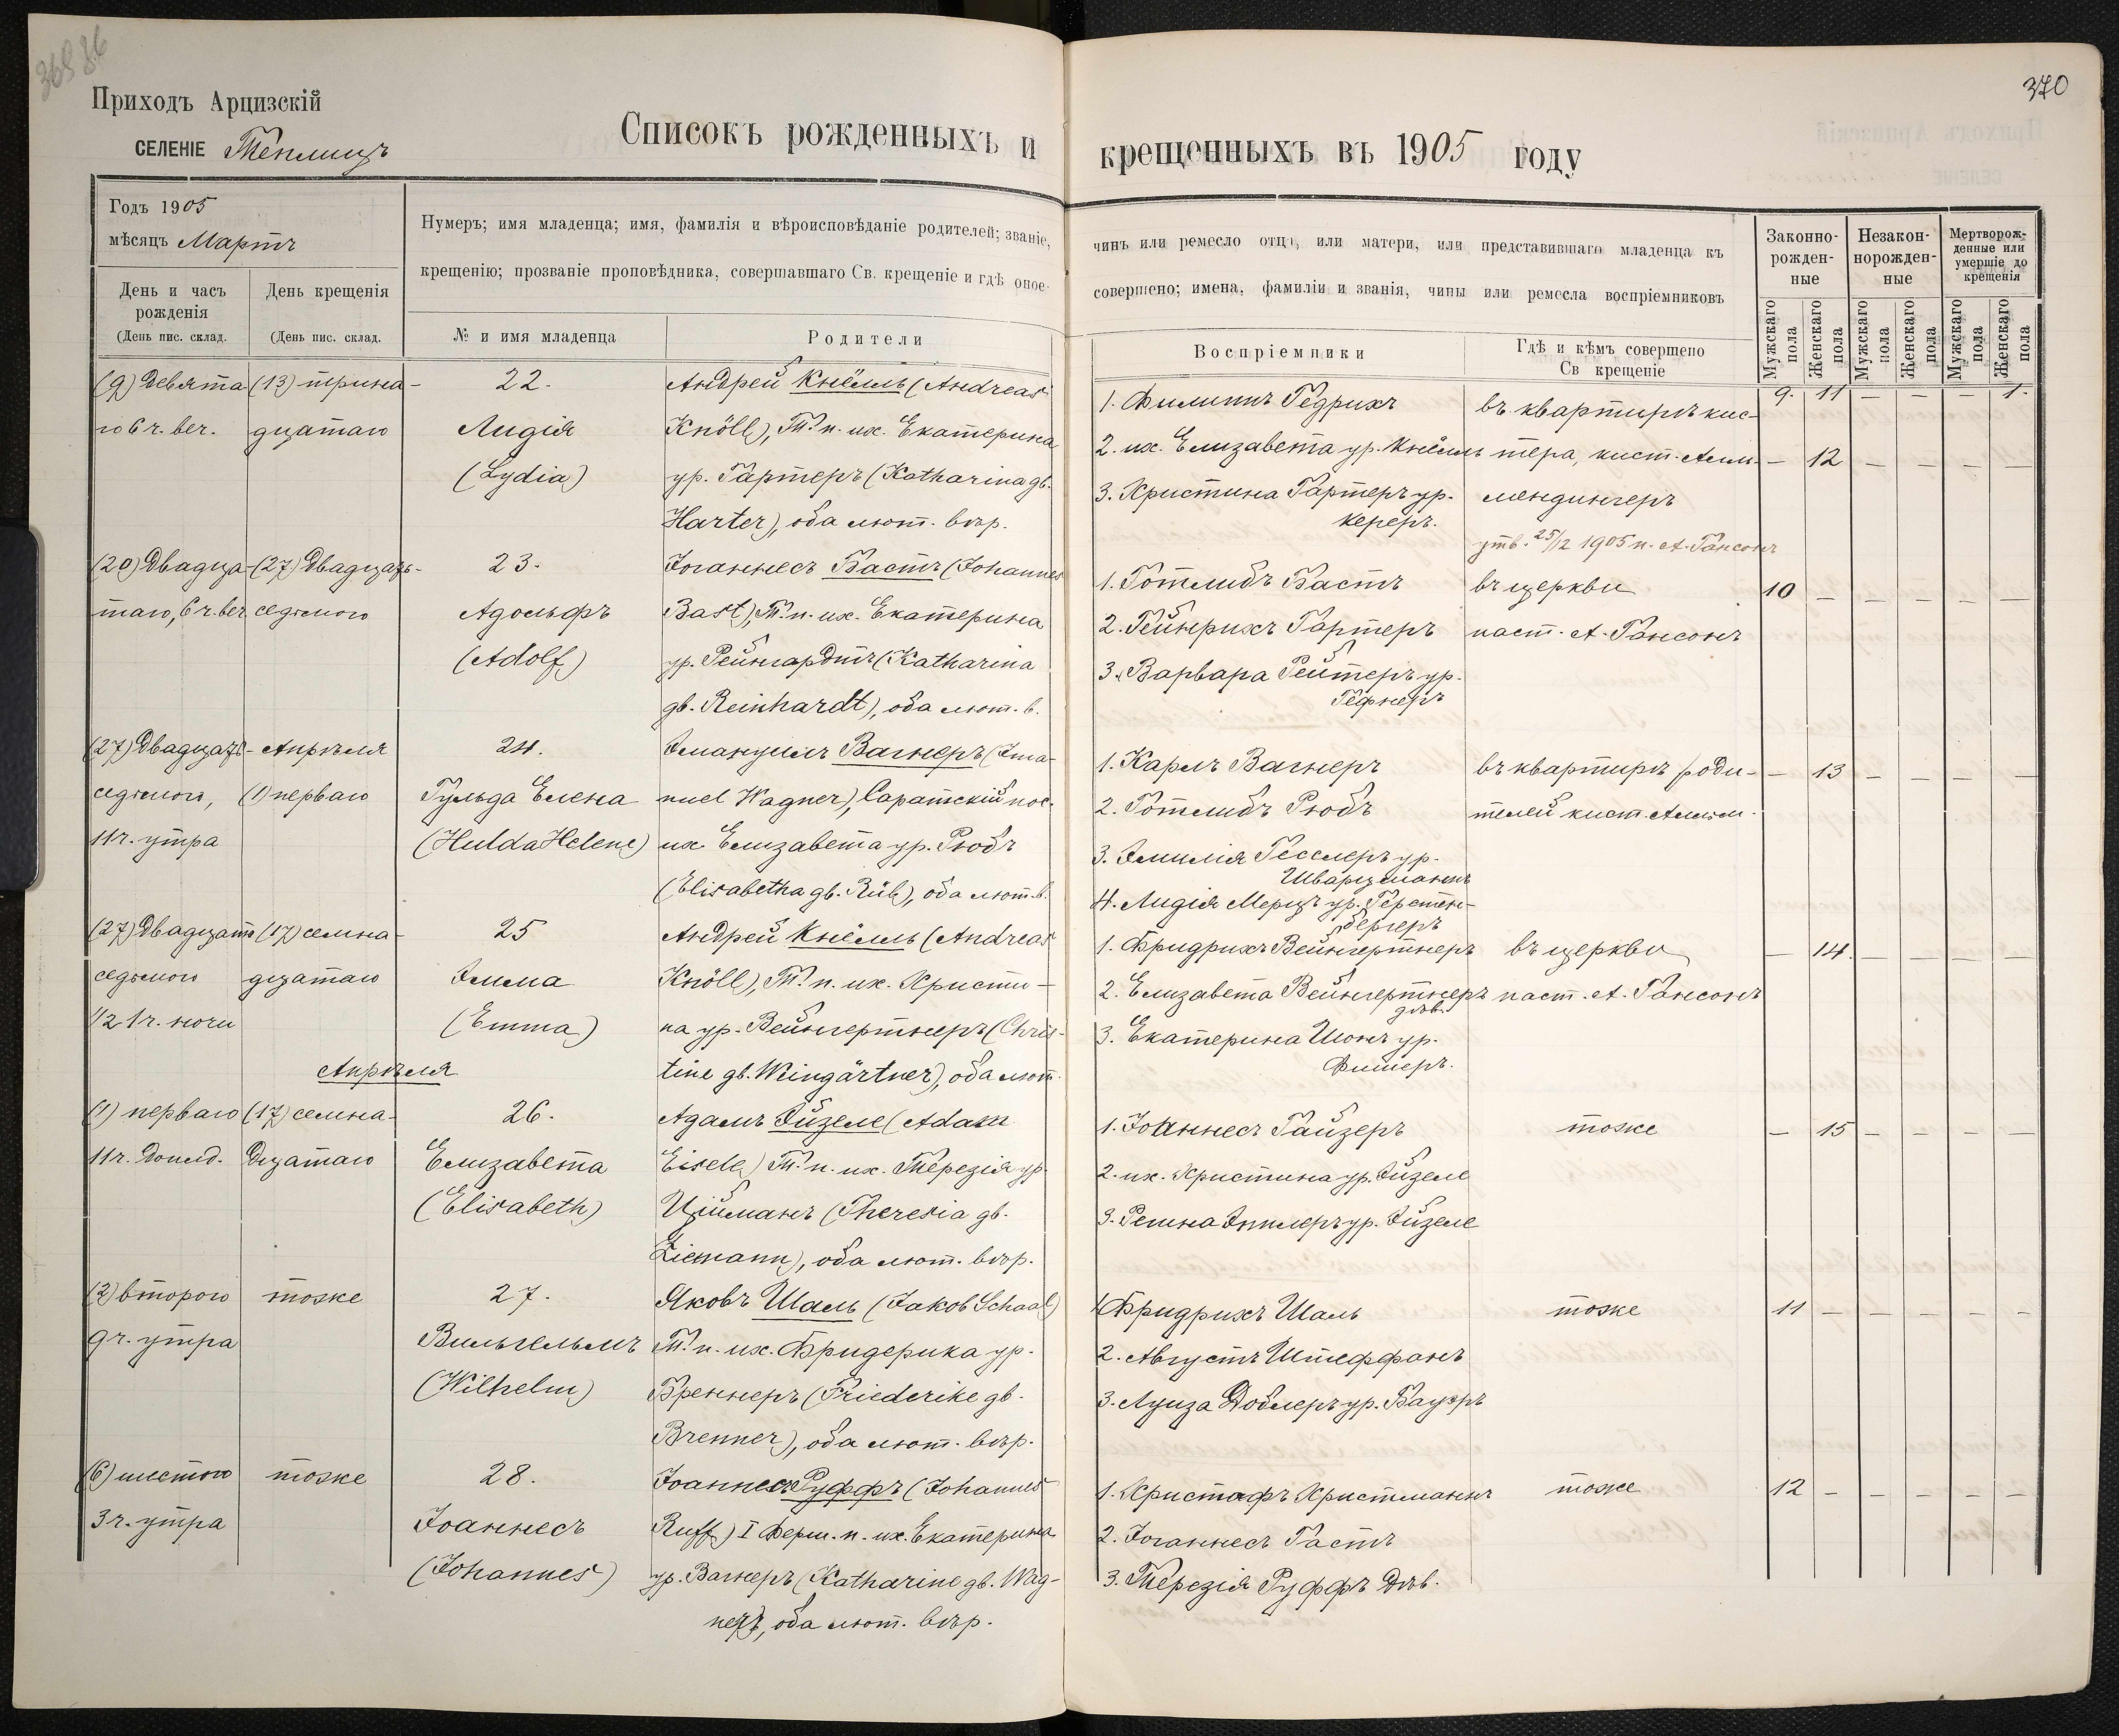 370
Приходъ Арцизскій
СЕЛЕНІЕ Теплицъ
Списокъ рожденныхъ и крещенныхъ въ 1905 году
Годъ 1905
мѣсяцъ Мартъ
День и часъ рожденія
(День пис. склад.
День крещенія
(День пис. склад.
Нумеръ; имя младенца; имя, фамилія и вѣроисповѣданіе родителей; званіе,
крещенію; прозваніе проповѣдника, совершавшаго Св. крещеніе и гдѣ оное
№ и имя младенца
Родители
чинъ или ремесло отца, или матери, или представившаго младенца къ
совершено; имена, фамиліи и званія, чины или ремесла воспріемниковъ
Воспріемники
Гдѣ и кѣмъ совершено
Св крещеніе
Законно-
рожден-
ные
Незакон-
норожден-
ные
Мертворож-
денные или
умершіе до
крещенія
Мужскаго пола
Женскаго пола
Мужскаго пола
Женскаго пола
Мужскаго пола
Женскаго пола
(9) Девята-
го 6 ч. веч.
(13) трина-
дцатаго
22.
Лидія
(Lydia)
Андрей Кнёлль (Andreas
Knöll), Т. п. иж. Екатерина
ур. Гартеръ (Katharina gb.
Harter), оба лют. вѣр.
1. Филиппъ Гедрихъ
2. иж. Елизавета ур. Кнёлль
3. Христина Гартеръ ур.
Кереръ.
въ квартирѣ кис-
тера, кист. Алль-
мендингеръ
утв. 25/12 1905 п. А. Гансонъ
9. 11 — — — 1.
— 12 — — — —
(20) Двадца-
таго, 6 ч. веч
(27) Двадцать-
седьмого
23.
Адольфъ
(Adolf)
Іоганнесъ Бастъ (Johannes
Bast), Т. п. иж. Екатерина
ур. Рейнгардтъ (Katharina
gb. Reinhardt), оба лют. в.
1. Готлибъ Бастъ
2. Гейнрихъ Гартеръ
3. Варвара Рейтеръ ур.
Гефнеръ
въ церкви
паст. А. Гансонъ
10 — — — — —
(27) Двадцать-
седьмого,
11 ч. утра
Апрѣля
(1) перваго
24.
Гульда Елена
(Hulda Helene)
Эмануилъ Вагнеръ (Ema-
nuel Wagner), Саратскій пос.
иж. Елизавета ур. Рюбъ
(Elisabetha gb. Rüb), оба лют. в.
1. Карлъ Вагнеръ
2. Готлибъ Рюбъ
3. Эмилія Гесслеръ ур.
Шварцманнъ
4. Лидія Мерцъ ур. Герстен-
бергеръ
въ квартирѣ роди-
телей кист. Алльм.
— 13 — — — —
(27) Двадцать
седьмого
1/2 1 ч. ночи
(17) семна-
дцатаго
25
Эмма
(Emma)
Андрей Кнёлль (Andreas
Knöll), Т. п. иж. Христи-
на ур. Вейнгертнеръ (Chris-
tine gb. Weingärtner), оба лют.
1. Фридрихъ Вейнгертнеръ
2. Елизавета Вейнгертнеръ
дѣв.
3. Екатерина Шонъ ур.
Фишеръ.
въ церкви
паст. А. Гансонъ
— 14. — — — —
Апрѣля
(1) перваго
11 ч. Попол.
(17) семна-
дцатаго
26.
Елизавета
(Elisabeth)
Адамъ Эйзеле (Adam
Eisele) Т. п. иж. Терезія ур.
Циманъ (Theresia gb.
Ziemann), оба лют. вѣр.
1. Іоаннесъ Гайзеръ
2. иж. Христина ур. Эйзеле
3. Регина Эпплеръ ур. Эйзеле
тоже
— 15 — — —
(2) второго
9 ч. утра
тоже
27.
Вильгельмъ
(Wilhelm)
Яковъ Шаль (Jakob Schaal)
Т. п. иж. Фридерика ур.
Бреннеръ (Friederike gb.
Brenner), оба лют. вѣр.
1. Фридрихъ Шаль
2. Августъ Штеффанъ
3. Луиза Доблеръ ур. Бауэръ
тоже
11 — — — — —
(6) шестого
3 ч. утра
тоже
28.
Іоаннесъ
(Johannes)
Іоаннесъ Руффъ (Johannes
Ruff) I Ферш. п. иж. Екатерина
ур. Вагнеръ (Katharine gb. Wag-
ner), оба лют. вѣр.
1. Христофъ Христманнъ
2. Іоганнесъ Гастъ
3. Терезія Руффъ Дѣв.
тоже
12 — — — — —